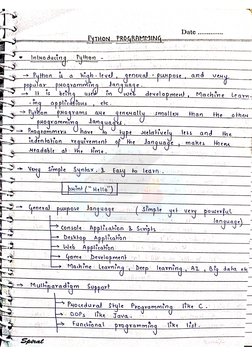 Date ............
PYTHON PROGRAMMING
Introducing Python -
→ Python is a high-level, general-purpose, and very
popular programming language.
→ It is being used in web development, Machine Learn-
ing applications, etc.
→ Python programs are generally smaller than the other
programming languages.
→ Programmers have to type relatively less and the
indentation requirement of the language, makes them
readable at the time.
→ Very Simple Syntax & Easy to learn.
print ("Hello")
→ General purpose language (Simple yet very powerful
language)
→ Console Application & Scripts
→ Desktop Application
→ Web Application
→ Game Development
→ Machine Learning, Deep learning, AI, Big data etc
→ Multiparadigm Support
→ Procedural Style Programming like C.
→ OOPs like Java.
→ Functional programming like
Spiral